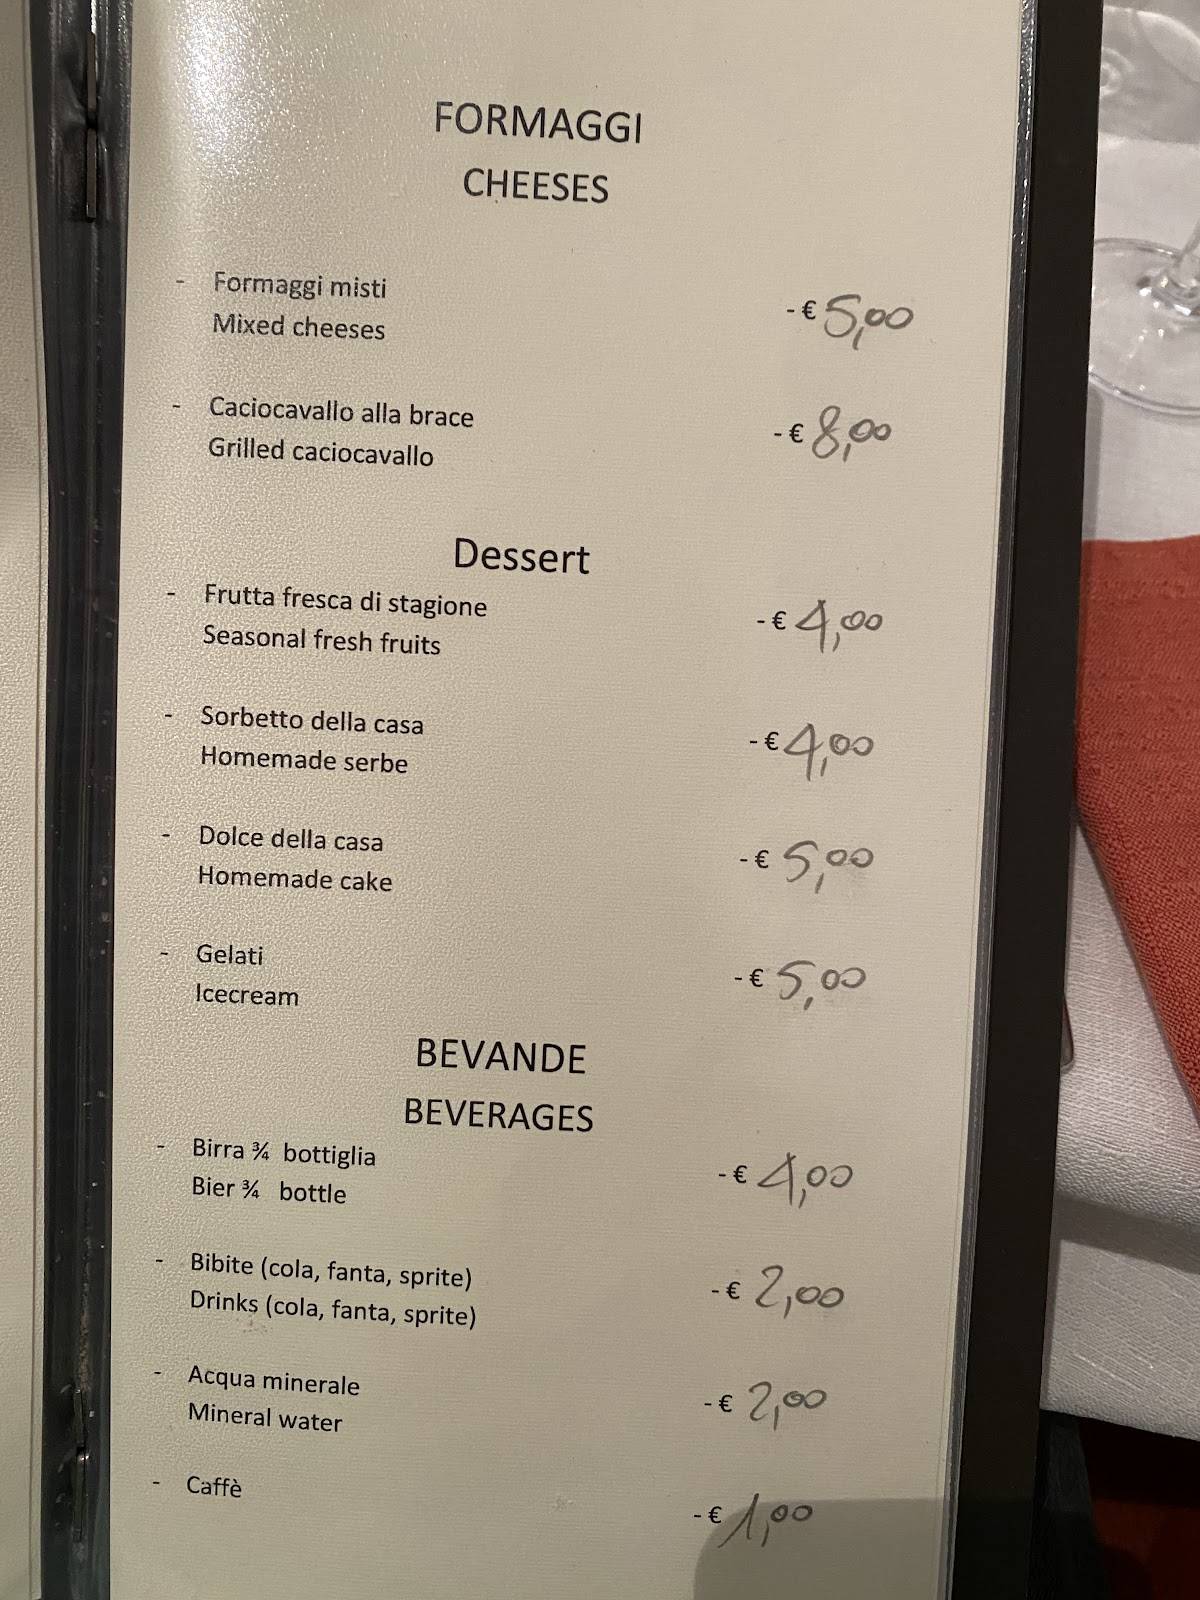 FORMAGGI
CHEESES
- Formaggi misti
Mixed cheeses
- € 5,00
- Caciocavallo alla brace
Grilled caciocavallo
- € 8,00
Dessert
- Frutta fresca di stagione
Seasonal fresh fruits
- € 4,00
- Sorbetto della casa
Homemade serbe
- € 4,00
- Dolce della casa
Homemade cake
- € 5,00
- Gelati
Icecream
- € 5,00
BEVANDE
BEVERAGES
- Birra ¾ bottiglia
Bier ¾ bottle
- € 4,00
- Bibite (cola, fanta, sprite)
Drinks (cola, fanta, sprite)
- € 2,00
- Acqua minerale
Mineral water
- € 2,00
- Caffè
- € 1,00